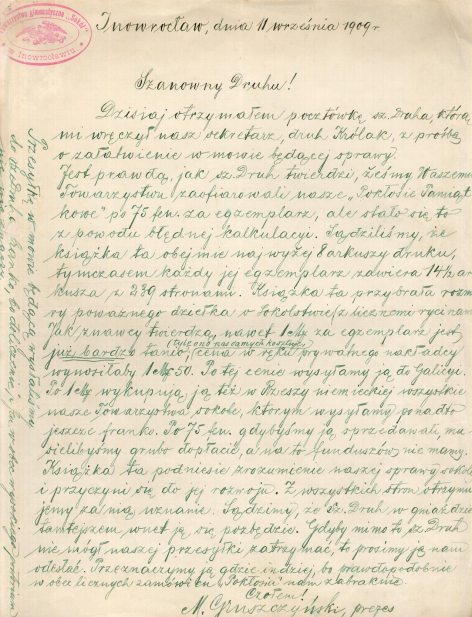 Towarzystwo gimnastyczne „Sokół"
w Inowrocławiu
Inowrocław, dnia 11 września 1909 r
Szanowny Druhu!
Dzisiaj otrzymałem pocztówkę sz. Druha, którą
mi wręczył nasz sekretarz, druh Królak, z prośbą
o załatwienie w mowie będącej sprawy.
Jest prawdą, jak sz. Druh twierdzi, żeśmy Waszemu
Towarzystwu zaofiarowali nasze „Pokłosie Pamiąt
kowe" po 75 fen. za egzemplarz, ale stało się to
z powodu błędnej kalkulacyi. Sądziliśmy, że
książka ta obejmie najwyżej 8 arkuszy druku,
tymczasem każdy jej egzemplarz zawiera 14½ ar
kusza z 239 stronami. Książka ta przybrała rozmia
ry poważnego dziełka o Sokolstwie z licznemi rycinami.
Jak znawcy twierdzą, nawet 1 Mk za egzemplarz jest
już bardzo tanio, cena w ręku prywatnego nakładcy
wynosiłaby 1 Mk 50. Po tej cenie wysyłamy ją do Galicyi.
Po 1 Mk wykupują ją też w Rzeszy niemieckiej wszystkie
nasze Towarzystwa sokole, którym wysyłamy ponadto
jeszcze franko. Po 75 fen. gdybyśmy ją sprzedawali, mu
sielibyśmy grubo dopłacić, a na to funduszów nie mamy.
Książka ta podniesie zrozumienie naszej sprawy sokolej
i przyczyni się do jej rozwoju. Z wszystkich stron otrzymu
jemy za nią uznanie. Sądzimy, że Sz. Druh w gnieździe
tamtejszem wnet ją się pozbędzie. Gdyby mimo to sz. Druh
nie mógł naszej przesyłki zatrzymać, to prosimy ją nam
odesłać. Przeznaczymy ją gdzieindziej, bo prawdopodobnie
w obec licznych zamówień „Pokłosia" nam zabraknie.
Czołem!
M. Gruszczyński, prezes
Przesyłkę w mowie będącą wysłaliśmy
do sz. Druha